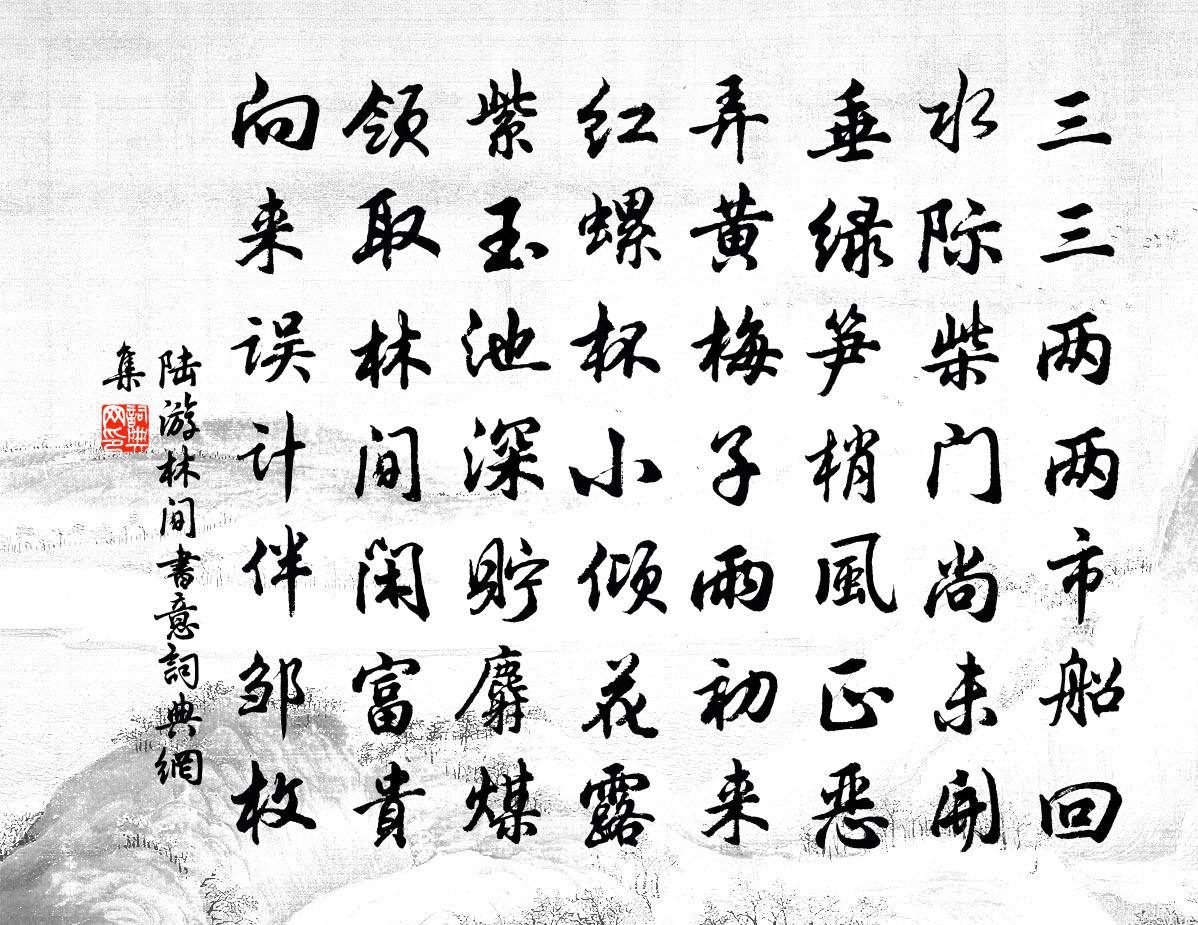 三三两两市船回
水际柴门尚未開
垂绿笋梢風正恶
弄黄梅子雨初来
红螺杯小倾花露
紫玉池深贮麝煤
领取林間闲富貴
向来误计伴邹枚
陆游林間書意詞典網
集
詞典
网印